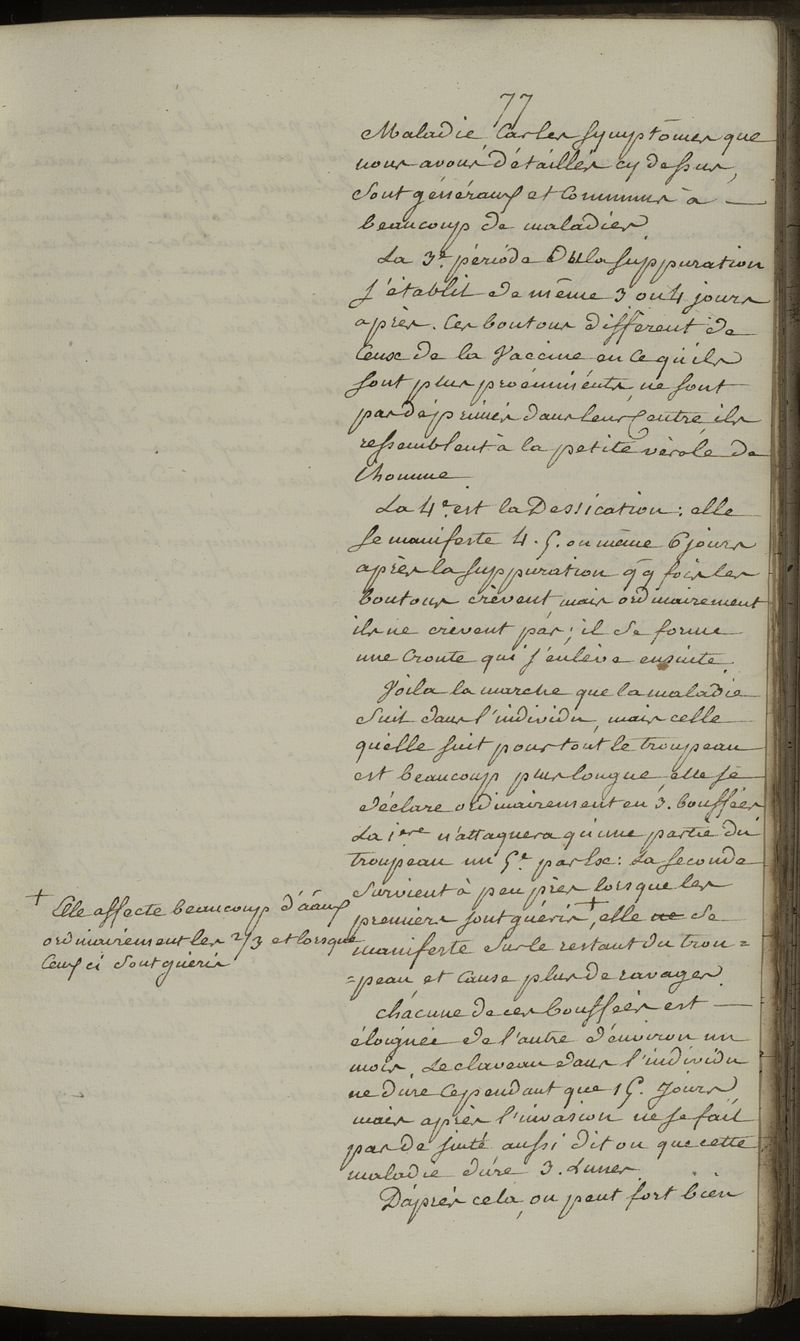 77
Maladie Car les symptômes que
nous avons détaillés cy dessus,
sont généraux et Communs à —
beaucoup de maladies.
La 3.e période De la suppuration
s'établit de même 3 ou 4 jours
après. Ces boutons diffèrent de
Ceux de la Vaccine en ce qu'ils
sont plus proéminents, ne sont
pas déprimés dans leur Centre, ils
ressemblent à la petite vérole de
l'homme.
La 4.e est la Dessication: elle
se manifeste 4. 5. ou même 6 jours
après la suppuration qq fois les
boutons crèvent mais ordinairement
ils ne crèvent pas; il se forme
une Croute qui s'enlève ensuite.
Voila la marche que la maladie
suit dans l'individu, mais celle
qu'elle suit pour tout le troupeau
est beaucoup plus longue, elle se
déclare ordinairement en 3. bouffées
La 1ere n'attaquera qu'une partie du
troupeau un 5.e par Ex: La seconde
survient à peu près lorsque les
premiers sont guéris +, elle ne se
manifeste sur le restant du trou=
=peau et Cause plus de ravages.
+ Elle affecte beaucoup d'aãux
ordinairement les 2/3 et lorsque
Ceux ci sont guéris
chacune de ces bouffées est —
éloignée de l'autre d'environ un
mois. Le claveau dans l'individu
ne dure Cependant que 15. Jours
mais après l'invasion ne se fait
pas de suite aussi dit on que cette
maladie dure 3. Lunes.
D'après cela, on peut fort bien